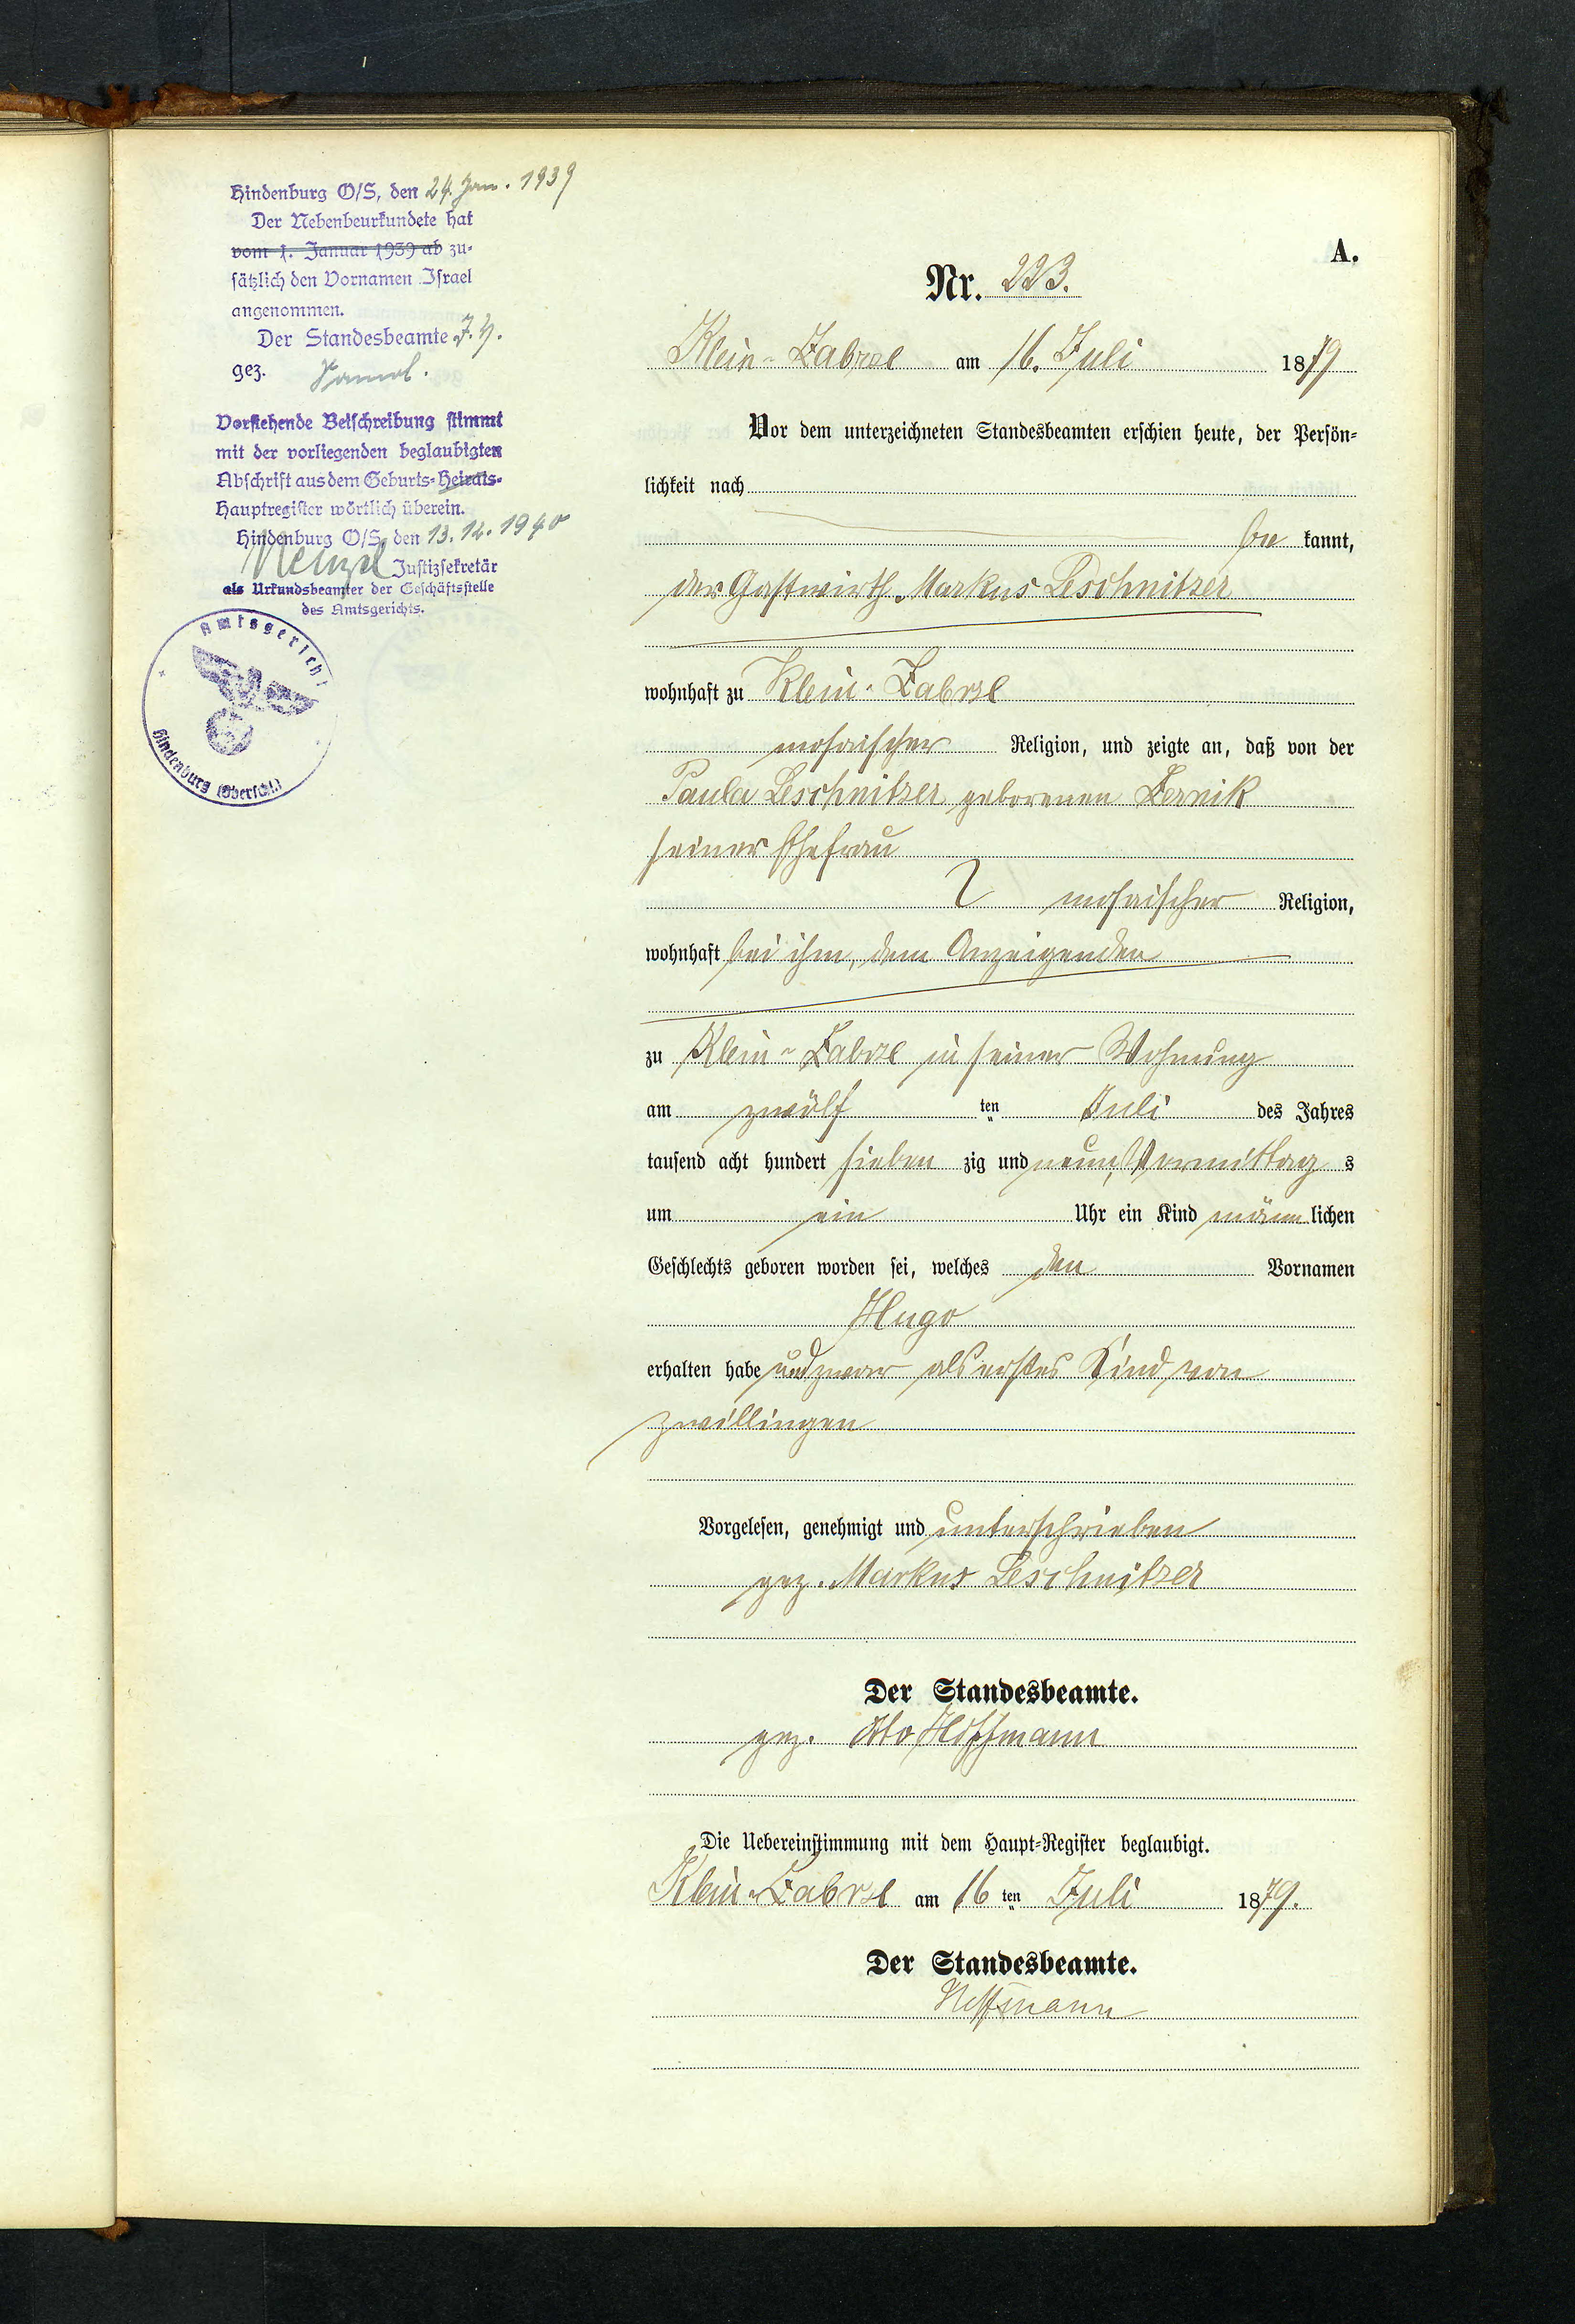 Hindenburg O/S, den 24. Jan. 1939
Der Nebenbeurkundete hat
vom 1. Januar 1939 ab zu-
sätzlich den Vornamen Israel
angenommen.
Der Standesbeamte J. V.
gez.
Vorstehende Beischreibung stimmt
mit der vorliegenden beglaubigten
Abschrift aus dem Geburts-Heirats-
Hauptregister wörtlich überein.
Hindenburg O/S, den 13.12.1940
Justizsekretär
als Urkundsbeamter der Geschäftsstelle
des Amtsgerichts.
Amtsgericht
Hindenburg (Oberschl.)
A.
Nr. 223.
Klein-Zabrze am 16. Juli 1879
Vor dem unterzeichneten Standesbeamten erschien heute, der Persön-
lichkeit nach
be kannt,
der Gastwirth Markus Leschnitzer
wohnhaft zu Klein-Zabrze
mosaischer Religion, und zeigte an, daß von der
Paula Leschnitzer geborenen Zernik
seiner Ehefrau
mosaischer Religion,
wohnhaft bei ihm, dem Anzeigenden
zu Klein-Zabrze in seiner Wohnung
am zwölf ten Juli des Jahres
tausend acht hundert sieben zig und neun, Vormittag s
um ein Uhr ein Kind männ lichen
Geschlechts geboren worden sei, welches den Vornamen
Hugo
erhalten habe und zwar als erstes Kind von
Zwillingen
Vorgelesen, genehmigt und unterschrieben
gez. Markus Leschnitzer
Der Standesbeamte.
gez. Otto Hoffmann
Die Uebereinstimmung mit dem Haupt-Register beglaubigt.
Klein-Zabrze am 16 ten Juli 1879.
Der Standesbeamte.
Hoffmann